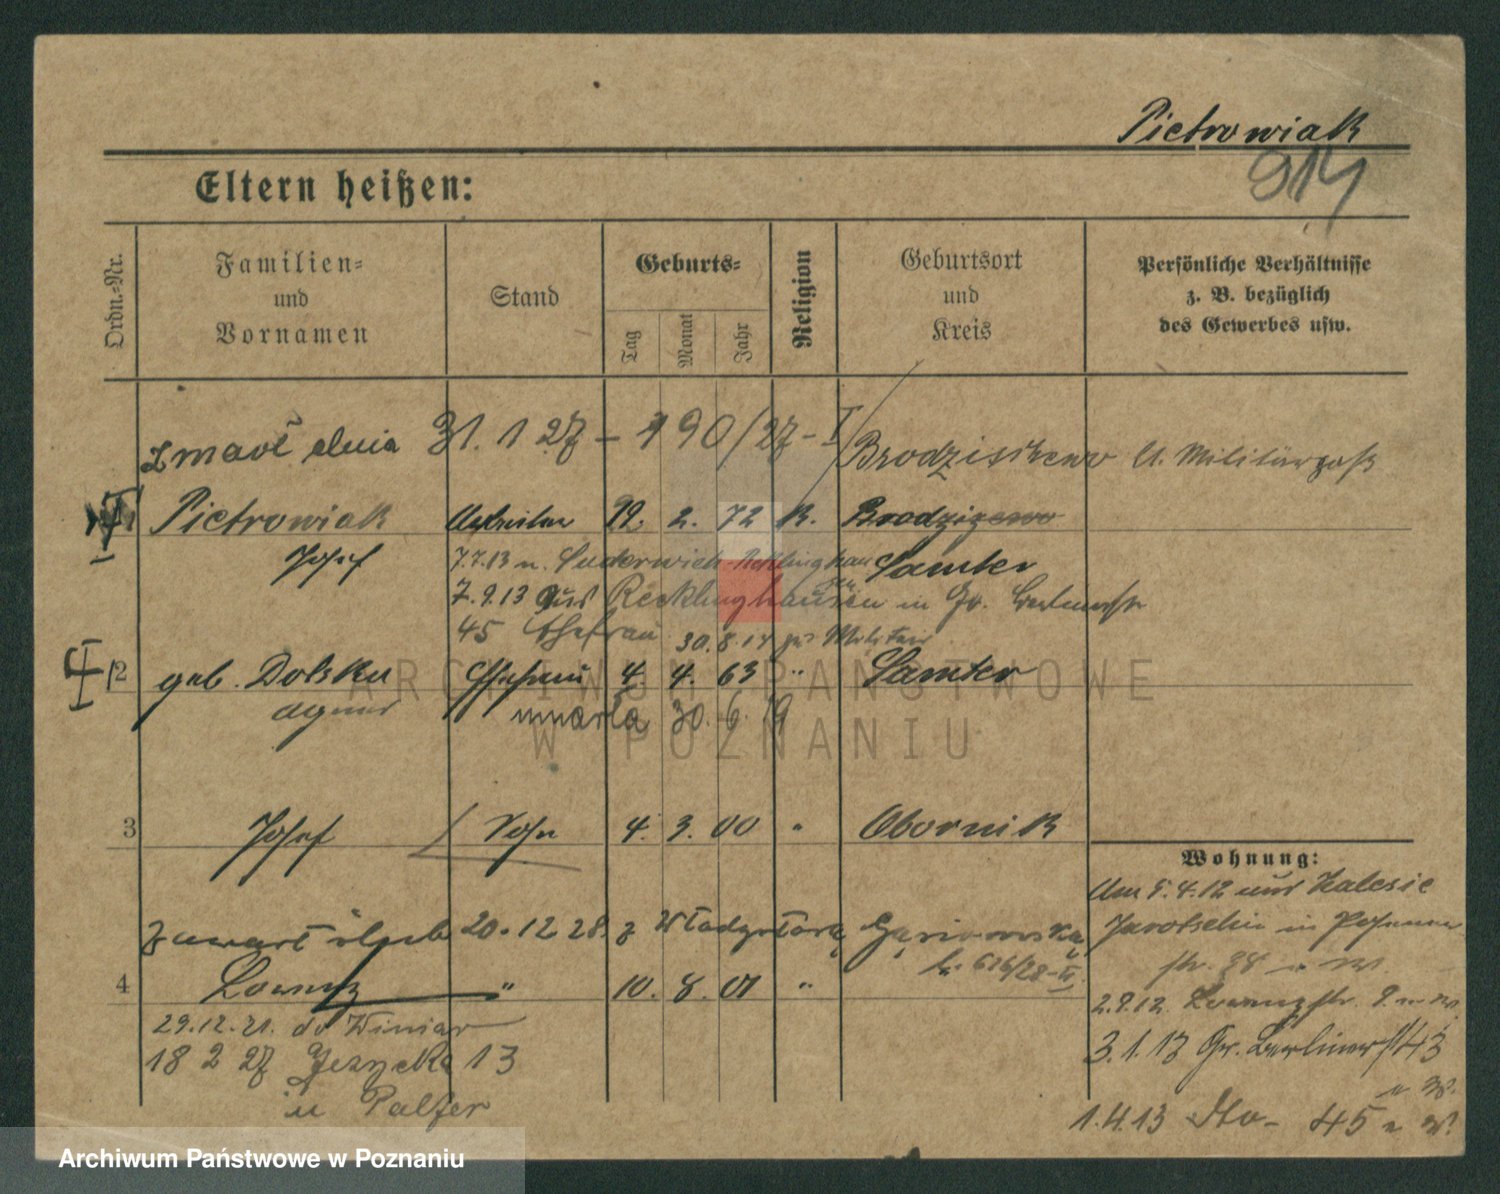 Pietrowiak
914
Eltern heißen:
Ordn.-Nr.
Familien- und Vornamen
Stand
Geburts-
Tag
Monat
Jahr
Religion
Geburtsort und Kreis
Persönliche Verhältnisse z. B. bezüglich des Gewerbes usw.
zmarł dnia 31. 1 27 - 190/27 - I Brodziszewo Militärpaß
Pietrowiak 2. 72 K. Brodziszewo
Josef 7.7.13 n. Suderwich Recklinghausen Samter
7.9.13 aus Recklinghausen in Gr. Berlinerstr
45 Ehefrau 30.8.14 Militär
2 geb. Dolska Ehefrau 4. 4. 63 " Samter
Agnes umarła 30. 6. 19
3 Josef Sohn 4. 3. 00 " Obornik
Wohnung:
Am 5.4.12 aus Zalesie
zawarł ślub 20. 12 28 z Władysławą Jarotschin in Posener
str. 38
676/28-
4 Lorenz " 10. 8. 01 "
2.9.12. Lorenzstr. 9
29.12.21. do Winiar
3.1.13 Gr. Berlinerstr 43
18 2 27 Jeżycka 13
u Palzer
1.4.13 dto - 45
ARCHIWUM PAŃSTWOWE
W POZNANIU
Archiwum Państwowe w Poznaniu